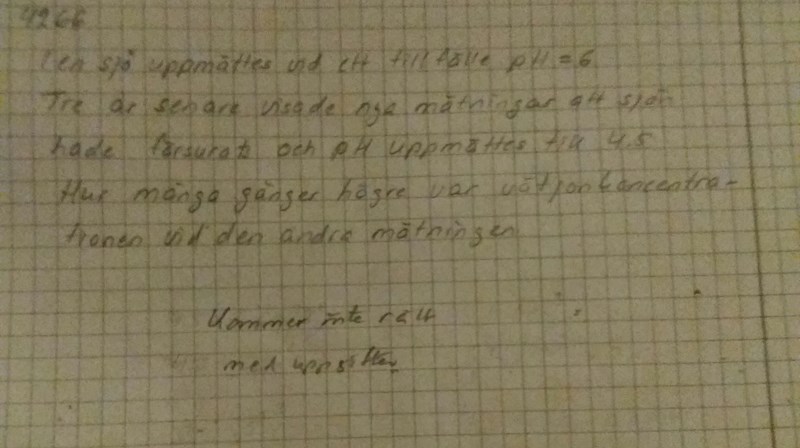 4266
I en sjö uppmättes vid ett tillfälle pH = 6
Tre år senare visade nya mätningar att sjön
hade försurats och pH uppmättes till 4,5
Hur många gånger högre var vätjonkoncentra-
tionen vid den andra mätningen
Kommer inte rätt
med uppsätten